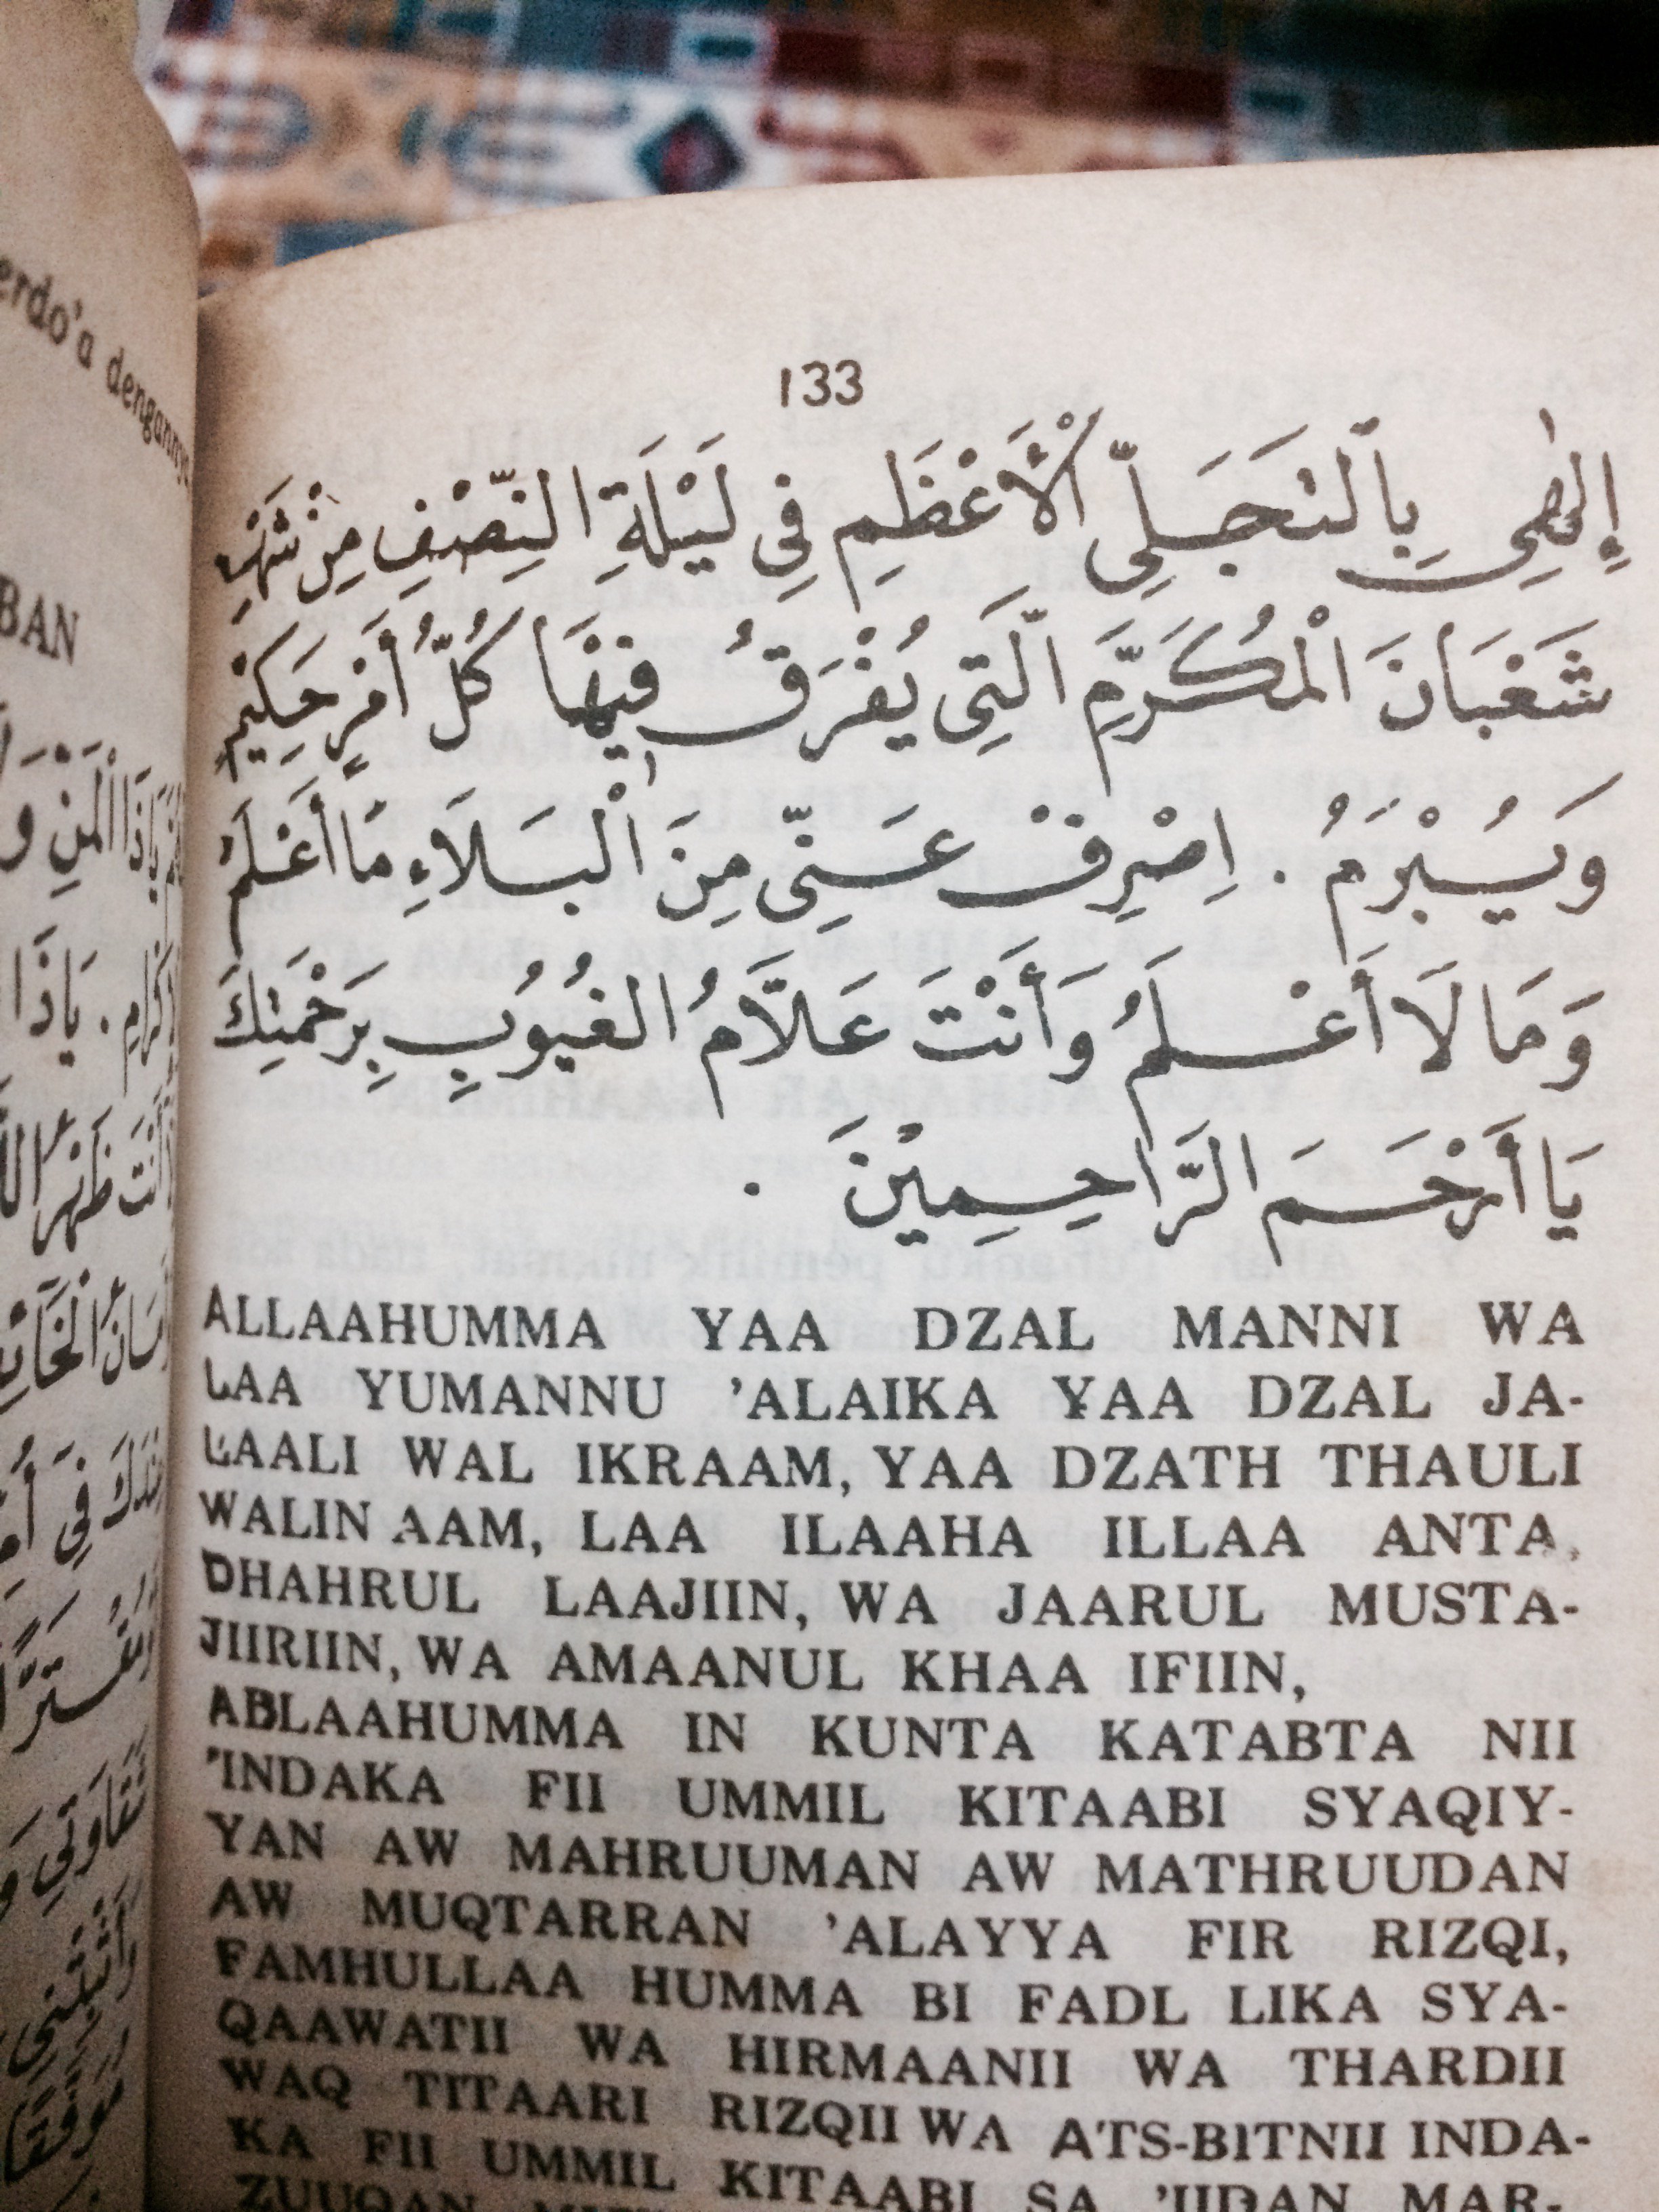 erdo'a dengannya
BAN
133
إِلٰهِي بِالتَّجَلِّى الْأَعْظَمِ فِى لَيْلَةِ النِّصْفِ مِنْ شَهْرِ
شَعْبَانَ الْمُكَرَّمِ الَّتِى يُفْرَقُ فِيْهَا كُلُّ أَمْرٍ حَكِيْمٍ
وَيُبْرَمُ . اِصْرِفْ عَنِّى مِنَ الْبَلَاءِ مَا أَعْلَمُ
وَمَا لَا أَعْلَمُ وَأَنْتَ عَلَّامُ الْغُيُوبِ بِرَحْمَتِكَ
يَا أَرْحَمَ الرَّاحِمِيْنَ .
ALLAAHUMMA YAA DZAL MANNI WA
LAA YUMANNU 'ALAIKA YAA DZAL JA-
LAALI WAL IKRAAM, YAA DZATH THAULI
WALIN AAM, LAA ILAAHA ILLAA ANTA,
DHAHRUL LAAJIIN, WA JAARUL MUSTA-
JIIRIIN, WA AMAANUL KHAA IFIIN,
ABLAAHUMMA IN KUNTA KATABTA NII
'INDAKA FII UMMIL KITAABI SYAQIY-
YAN AW MAHRUUMAN AW MATHRUUDAN
AW MUQTARRAN 'ALAYYA FIR RIZQI,
FAMHULLAA HUMMA BI FADL LIKA SYA-
QAAWATII WA HIRMAANII WA THARDII
WAQ TITAARI RIZQII WA ATS-BITNII INDA-
KA FII UMMIL KITAABI SA 'IIDAN MAR-
ZUUQAN